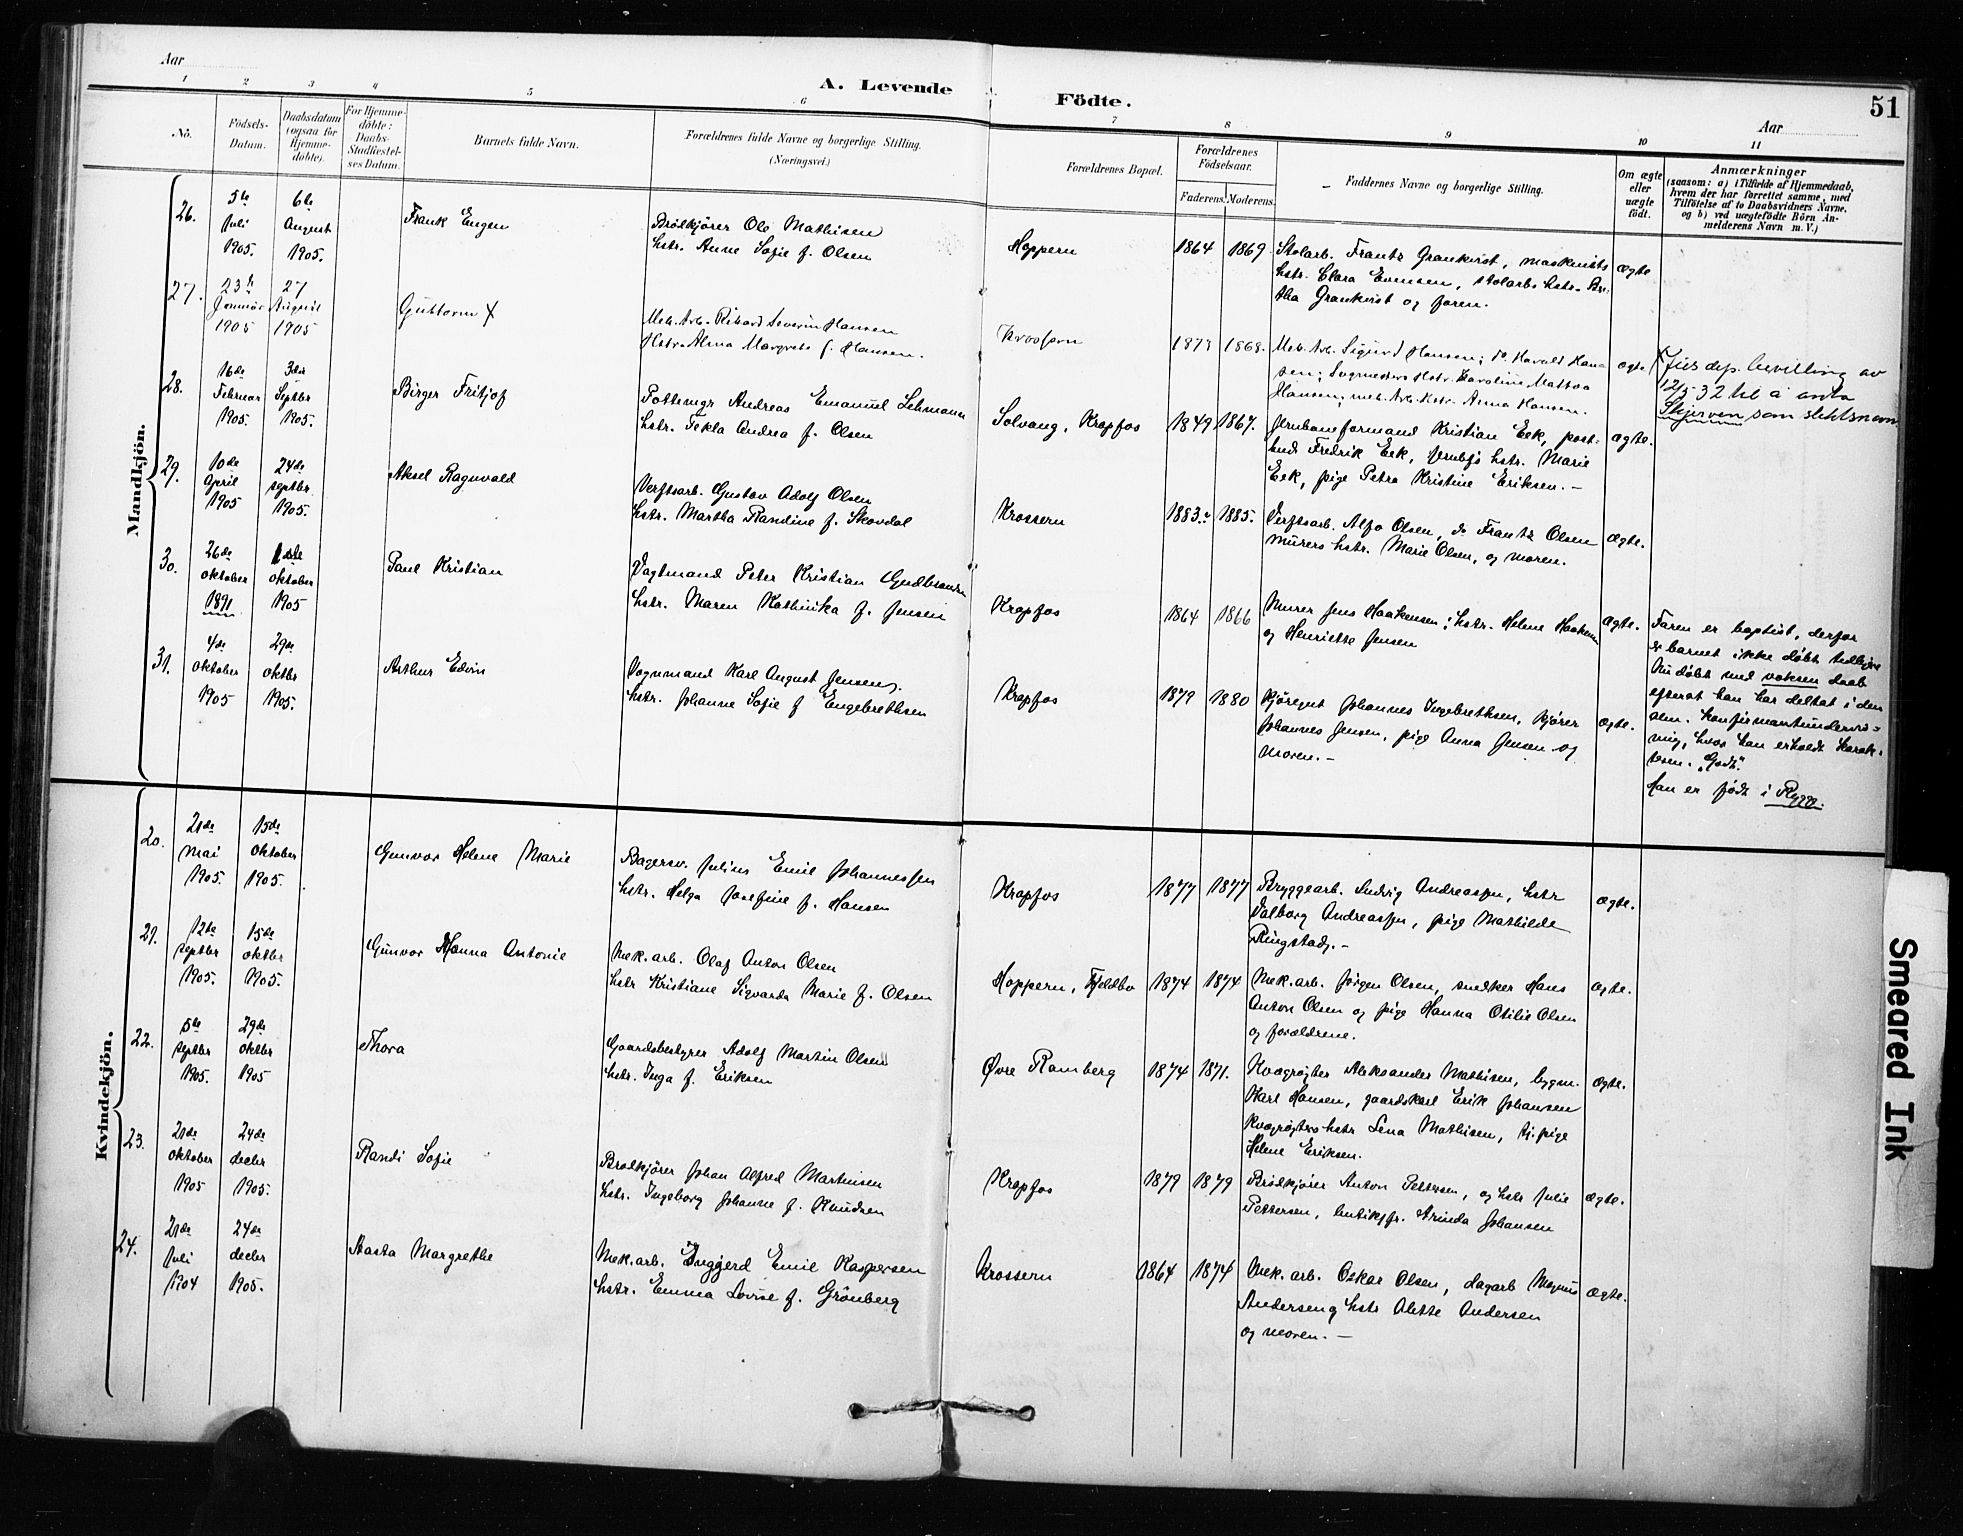 Aar
A. Levende Födte.
Aar
51
1 2 3 4 5 6 7 8 9 10 11
Nö.
Födsels-
Datum.
Daabsdatum
(ogsaa for
Hjemme-
döbte).
For Hjemme-
döbte:
Daabs-
Stadfæstel-
ses Datum.
Barnets fulde Navn.
Forældrenes fulde Navne og borgerlige Stilling.
(Næringsvei.)
Forældrenes Bopæl.
Forældrenes
Födselsaar.
Faderens. Moderens.
Faddernes Navne og borgerlige Stilling.
Om ægte
eller
uægte
født.
Anmærkninger
(saasom: a) i Tilfælde af Hjemmedaab,
hvem der har forrettet samme, med
Tilföielse af to Daabsvidners Navne.
og b) ved uægtefödte Börn An-
melderens Navn m. V.)
Mandkjön.
26.
5te
Juli
1905.
6te
August
1905.
Frank Eugen
Brölkjörer Ole Mathisen
hstr. Anne Sofie f. Olsen
Hoppern
1864
1869
Stolarb. Frantz Grankvist, maskinists
hstr. Clara Evensen, stolarbs hstr. Be-
tha Grankvist og faren.
ægte
27.
23de
Januar
1905
27
August
1905
Guttorm X
Mek. Arb. Rikard Severin Hansen
Hstr. Alma Margrete f. Hansen.
Krossern
1871
1868.
Mek. Arb. Sigurd Hansen; do. Harald Han-
sen; Hstr. Karoline
Hansen; mek. Arb. Hstr. Anna Hansen.
ægte.
X Jus. dep. bevilling av
12/5 32 til å anta
Skjerven som slektsnavn
28.
16de
Februar
1905.
3die
Septbr
1905.
Birger Fritjof
Pottemgr Andreas Emanuel Lehmann
hstr. Tekla Andrea f. Olsen
Solvang, Krapfos
1849
1867.
Jernbaneformand Kristian Eek, post-
bud Fredrik Eek, hstr. Marie
Eek, pige Petra Kristine Eriksen. —
ægte.
29.
10de
April
1905
24de
septbr.
1905.
Aksel Ragnvald
Verftsarb. Gustav Adolf Olsen
hstr. Martha Randine f. Skovdal
Krossern
1883.
1885.
Verftsarb. Alfo Olsen, do Frantz Olsen
murers hstr. Marie Olsen, og moren.
ægte.
30.
26de
oktober
1891
1ste
oktober
1905
Paul Kristian
Vagtmand Peter Kristian Gudbrandsen
hstr. Maren Kathinka f. Jensen
Krapfos
1864
1866
Murer Jens Haakensen; hstr. Helene Haakensen
og Henriette Jensen
ægte.
Faren er baptist, derfor
er barnet ikke døbt tidligere
Nu døbt med voksen daab
efterat han har deltat i den
alm. konfirmantundervis-
ning, hvor han erholdt karak-
teren. "Godt".
Han er født i Rygge.
31.
4de
oktober
1905
29de
oktbr
1905.
Arthur Edvin
Vognmand Karl August Jensen
hstr. Johanne Sofie f Engebrethsen
Krapfos
1879
1880
Kjøregut Johannes Ingebrethsen, kjører
Johannes Jensen, pige Anna Jensen og
moren. —
ægte.
Kvindekjön.
20.
21de
mai
1905.
15de
oktober
1905.
Gunvor Helene Marie
Bagersv. Julius Emil Johannessen
hstr. Helga Josefine f. Hansen
Krapfos
1877
1877
Bryggearb. Ludvig Andreassen, hstr
Valborg Andreassen, pige Mathilde
Ringstad. —
ægte.
21.
12te
septbr
1905.
15de
oktbr
1905.
Gunvor Hanna Antonie
Mek. arb. Olaf Anton Olsen
hstr Kristiane Sigvarda Marie f. Olsen
Hoppern, Fjeldbo
1874
1874
Mek. arb. Jörgen Olsen, snedker Hans
Anton Olsen og pige Hanna Otilie Olsen
og forældrene.
ægte.
22.
5te
septbr
1905.
29de
oktbr
1905
Thora
Gaardsbestyrer Adolf Martin Olsen
hstr. Inga f. Eriksen
Øvre Ramberg
1874
1871.
Kvægrøgter Aleksander Mathisen, bygm.
Karl Hansen, gaardskarl Erik Johansen
Kvægrøgters hstr Lena Mathisen, tj. pige
Helene Eriksen.
ægte.
23.
21de
oktober
1905
24de
decbr
1905.
Randi Sofie
Brødkjører Johan Alfred Martinsen
hstr. Ingeborg Johanne f. Knudsen
Krapfos
1879
1879
Brødkjører Anton Pettersen, og hstr Julie
Pettersen, butikjfr. Arinda Johansen
ægte.
24.
21de
juli
1904
24de
decbr
1905.
Aasta Margrethe
Mek. arb. Inggjerd Emil Kaspersen
hstr. Emma Lovise f. Grönberg
Krossern
1864
1874
Mek. arb. Oskar Olsen, dagarb Magnus
Andersen og hstr Alette Andersen
og moren. —
ægte.
Smeared Ink